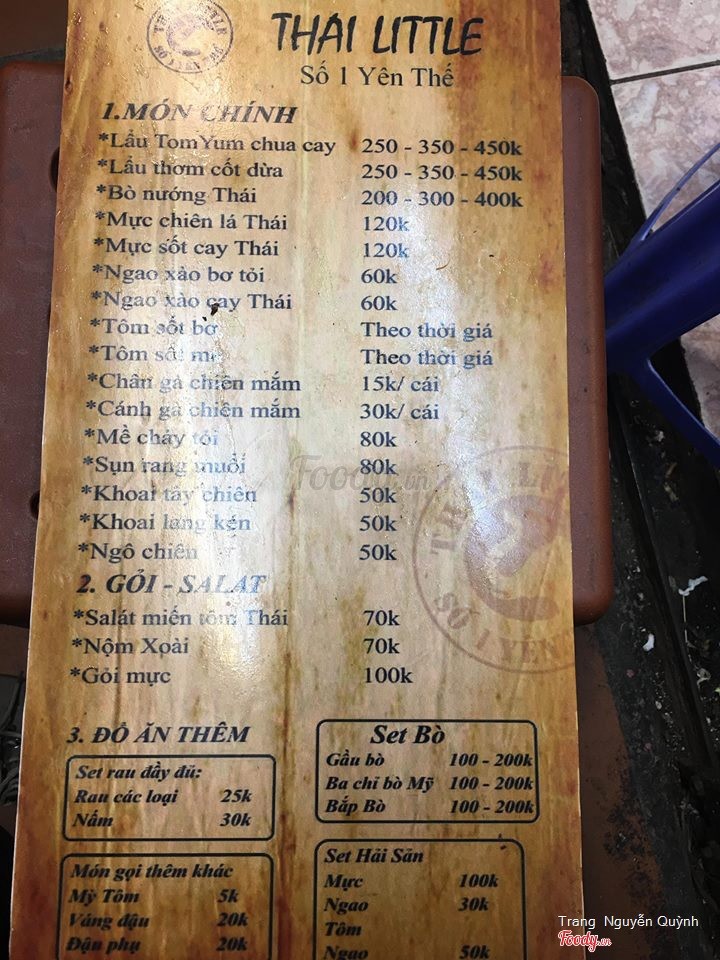 THAI LITTLE
Số 1 Yên Thế
1.MÓN CHÍNH
*Lẩu TomYum chua cay 250 - 350 - 450k
*Lẩu thơm cốt dừa 250 - 350 - 450k
*Bò nướng Thái 200 - 300 - 400k
*Mực chiên lá Thái 120k
*Mực sốt cay Thái 120k
*Ngao xào bơ tỏi 60k
*Ngao xào cay Thái 60k
*Tôm sốt bơ Theo thời giá
*Tôm sốt me Theo thời giá
*Chân gà chiên mắm 15k/ cái
*Cánh gà chiên mắm 30k/ cái
*Mề cháy tỏi 80k
*Sụn rang muối 80k
*Khoai tây chiên 50k
*Khoai lang kén 50k
*Ngô chiên 50k
2. GỎI - SALAT
*Salát miến tôm Thái 70k
*Nộm Xoài 70k
*Gỏi mực 100k
3. ĐỒ ĂN THÊM
Set rau đầy đủ:
Rau các loại 25k
Nấm 30k
Món gọi thêm khác
Mỳ Tôm 5k
Váng đậu 20k
Đậu phụ 20k
Set Bò
Gầu bò 100 - 200k
Ba chỉ bò Mỹ 100 - 200k
Bắp Bò 100 - 200k
Set Hải Sản
Mực 100k
Ngao 30k
Tôm
Ngao 50k
Foody.vn
Trang Nguyễn Quỳnh
Foody.vn